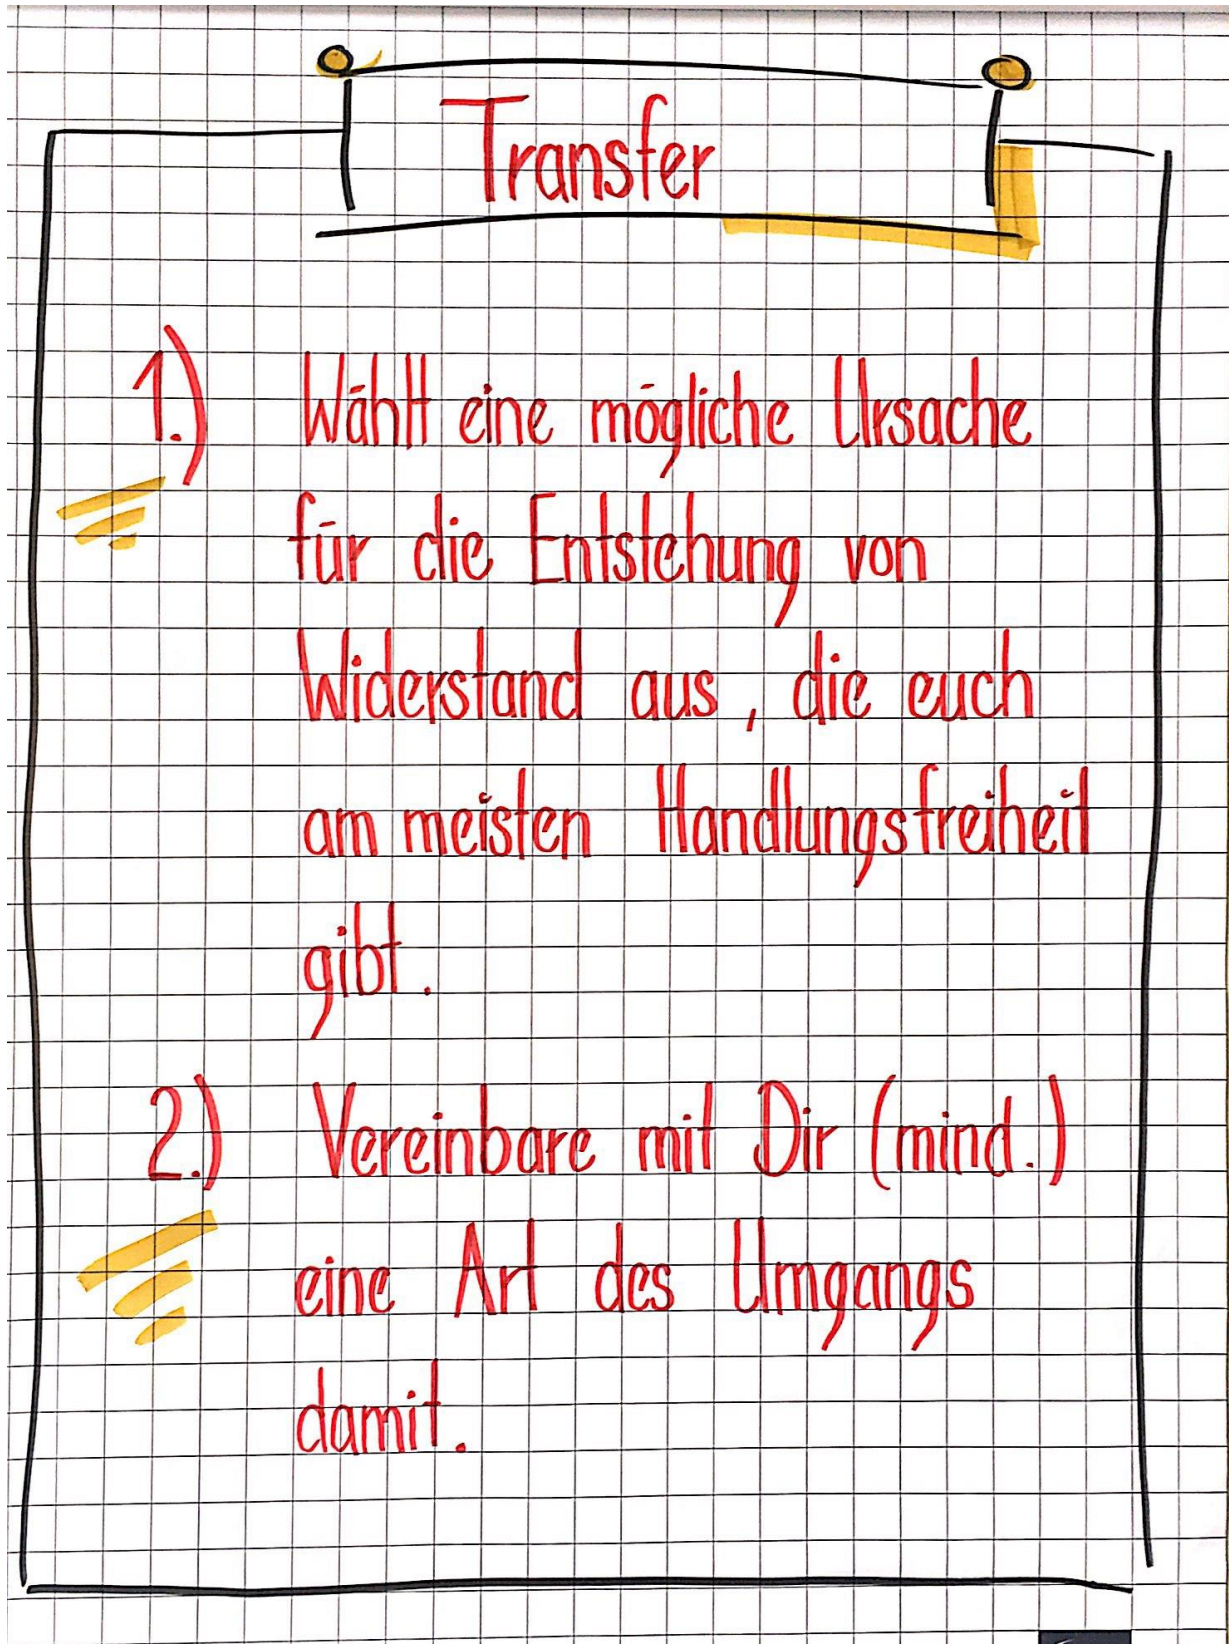 Transfer
1.) Wählt eine mögliche Ursache
für die Entstehung von
Widerstand aus, die euch
am meisten Handlungsfreiheit
gibt.
2.) Vereinbare mit Dir (mind.)
eine Art des Umgangs
damit.